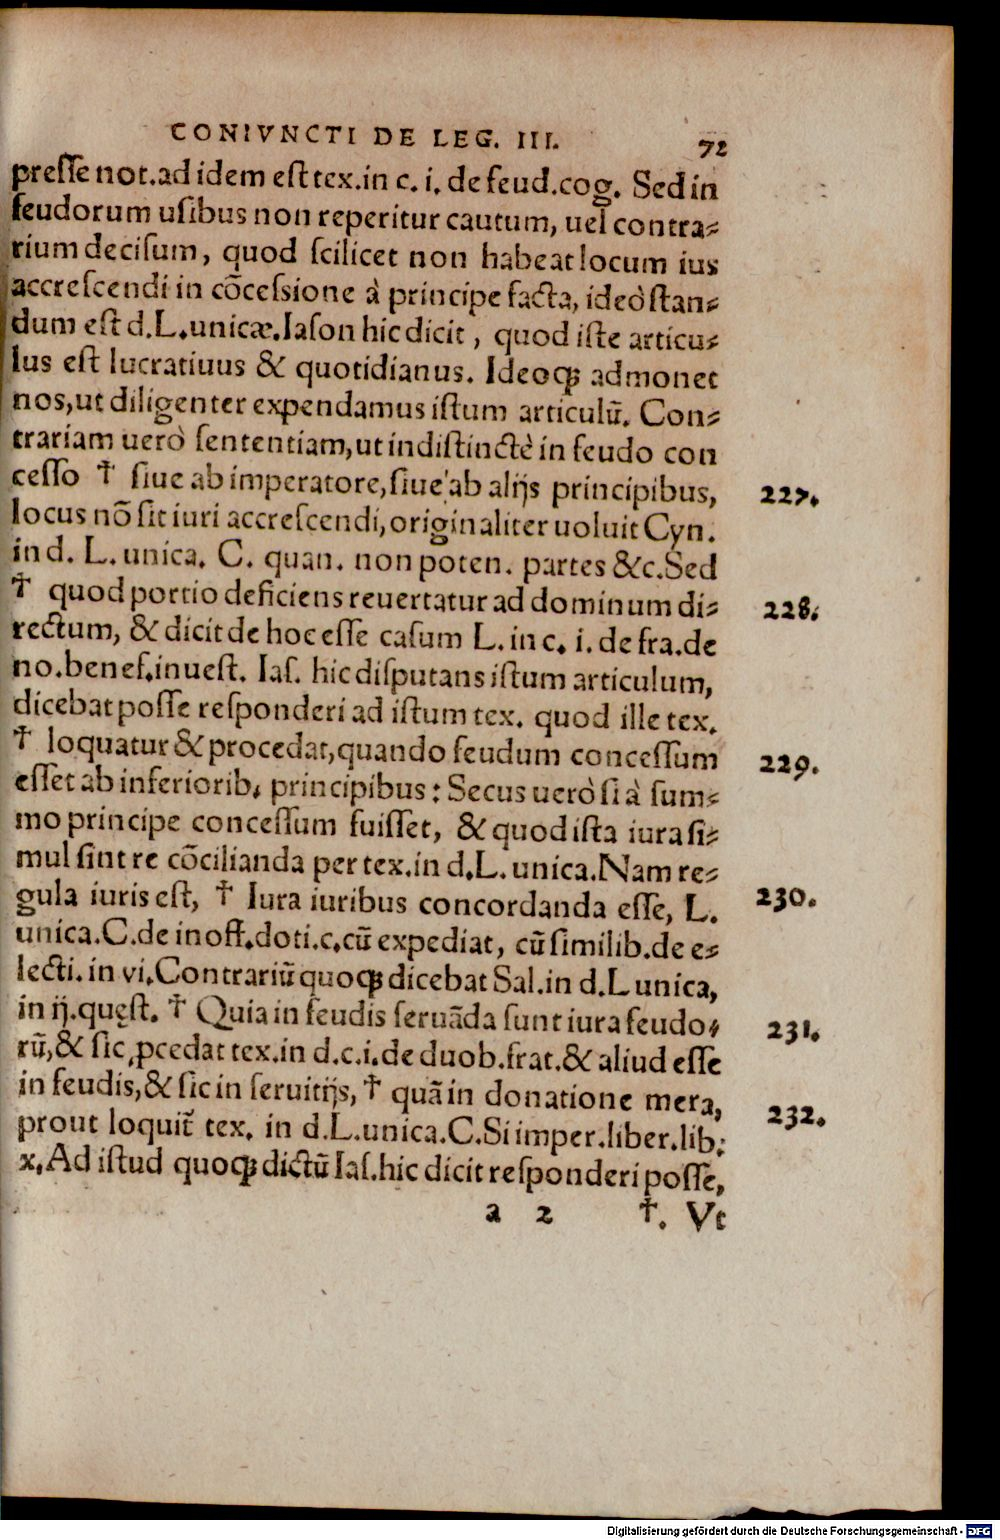 CONIVNCTI DE LEG. III. 72
presse not. ad idem est tex. in c. i. de feud. cog. Sed in
feudorum usibus non reperitur cautum, uel contra-
rium decisum, quod scilicet non habeat locum ius
accrescendi in cõcessione à principe facta, ideò stan-
dum est d. L. unicæ. Iason hic dicit, quod iste articu-
lus est lucratiuus & quotidianus. Ideoq; admonet
nos, ut diligenter expendamus istum articulũ. Con-
trariam uerò sententiam, ut indistinctè in feudo con
cesso † siue ab imperatore, siue ab alijs principibus, 227.
locus nõ sit iuri accrescendi, originaliter uoluit Cyn.
in d. L. unica. C. quan. non poten. partes &c. Sed
† quod portio deficiens reuertatur ad dominum di- 228.
rectum, & dicit de hoc esse casum L. in c. i. de fra. de
no. benef. inuest. Ias. hic disputans istum articulum,
dicebat posse responderi ad istum tex. quod ille tex.
† loquatur & procedat, quando feudum concessum 229.
esset ab inferiorib, principibus: Secus uerò si à sum-
mo principe concessum fuisset, & quod ista iura si-
mul sint re cõcilianda per tex. in d. L. unica. Nam re-
gula iuris est, † Iura iuribus concordanda esse, L. 230.
unica. C. de inoff. doti. c. cũ expediat, cũ similib. de e-
lecti. in vi. Contrariũ quoq; dicebat Sal. in d. L unica,
in ij. quęst. † Quia in feudis seruãda sunt iura feudo- 231.
rũ, & sic ꝓcedat tex. in d. c. i. de duob. frat. & aliud esse
in feudis, & sic in seruitijs, † quã in donatione mera, 232.
prout loquit̃ tex. in d. L. unica. C. Si imper. liber. lib.
x. Ad istud quoq; dictũ Ias. hic dicit responderi posse,
a 2 †. Vt
Digitalisierung gefördert durch die Deutsche Forschungsgemeinschaft - DFG